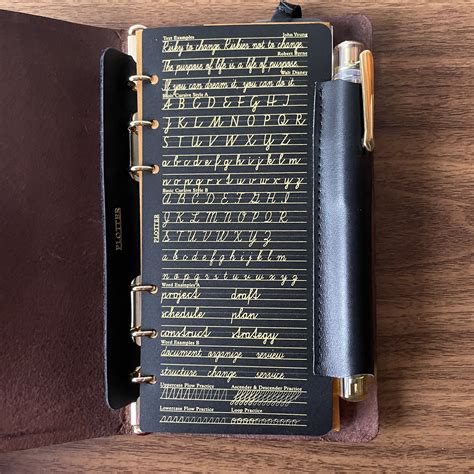 Text Examples
John Young
Risky to change. Riskier not to change.
Robert Byrne
The purpose of life is a life of purpose.
Walt Disney
If you can dream it, you can do it.
Basic Cursive Style A
A B C D E F G H I
J K L M N O P Q R
S T U V W X Y Z
a b c d e f g h i j k l m
n o p q r s t u v w x y z
Basic Cursive Style B
A B C D E F G H I J
K L M N O P Q R
S T U V W X Y Z
a b c d e f g h i j k l m
n o p q r s t u v w x y z
Word Examples A
project draft
schedule plan
construct strategy
Word Examples B
document organize review
structure change service
Uppercase Flow Practice
Ascender & Descender Practice
Lowercase Flow Practice
Loop Practice
PLOTTER
PLOTTER